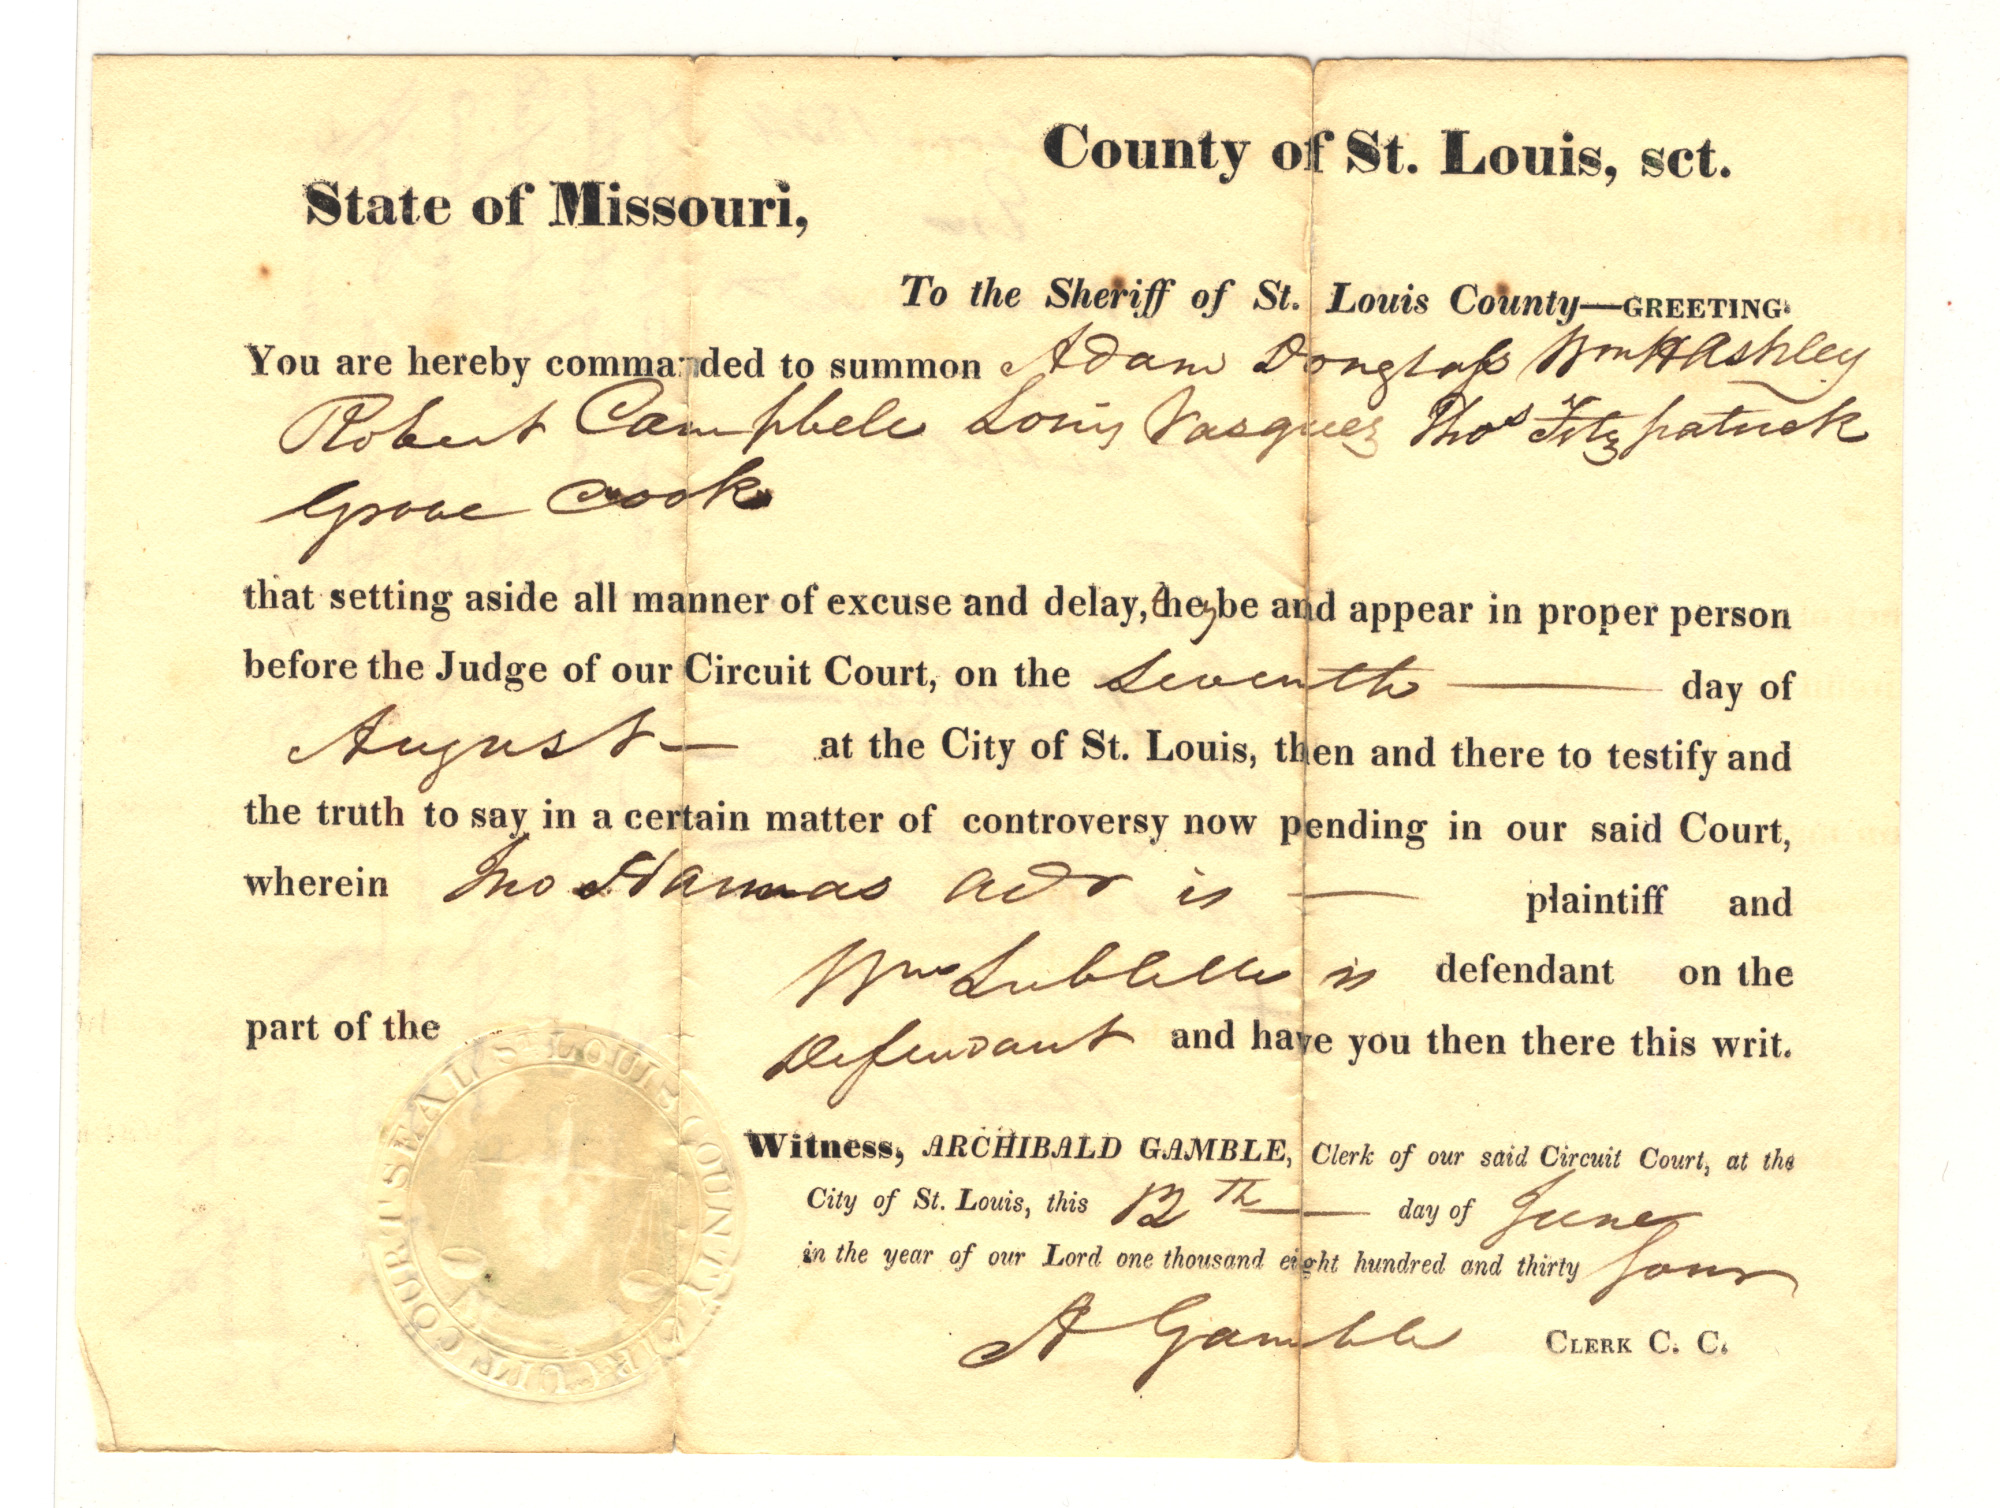 County of St. Louis, sct.
State of Missouri,
To the Sheriff of St. Louis County—GREETING:
You are hereby commanded to summon Adam Donglass Wm H Ashley
Robert Campbele Louis Vasquez Thos Fitzpatrick
Grove Cook
that setting aside all manner of excuse and delay, they be and appear in proper person
before the Judge of our Circuit Court, on the Seventh — day of
August — at the City of St. Louis, then and there to testify and
the truth to say in a certain matter of controversy now pending in our said Court,
wherein Jno Hannas adr is — plaintiff and
Wm Sublette is defendant on the
part of the Defendant and have you then there this writ.
Witness, ARCHIBALD GAMBLE, Clerk of our said Circuit Court, at the
City of St. Louis, this 12th — day of June
in the year of our Lord one thousand eight hundred and thirty four
A Gamble CLERK C. C.
ST LOUIS COUNTY CIRCUIT COURT SEAL